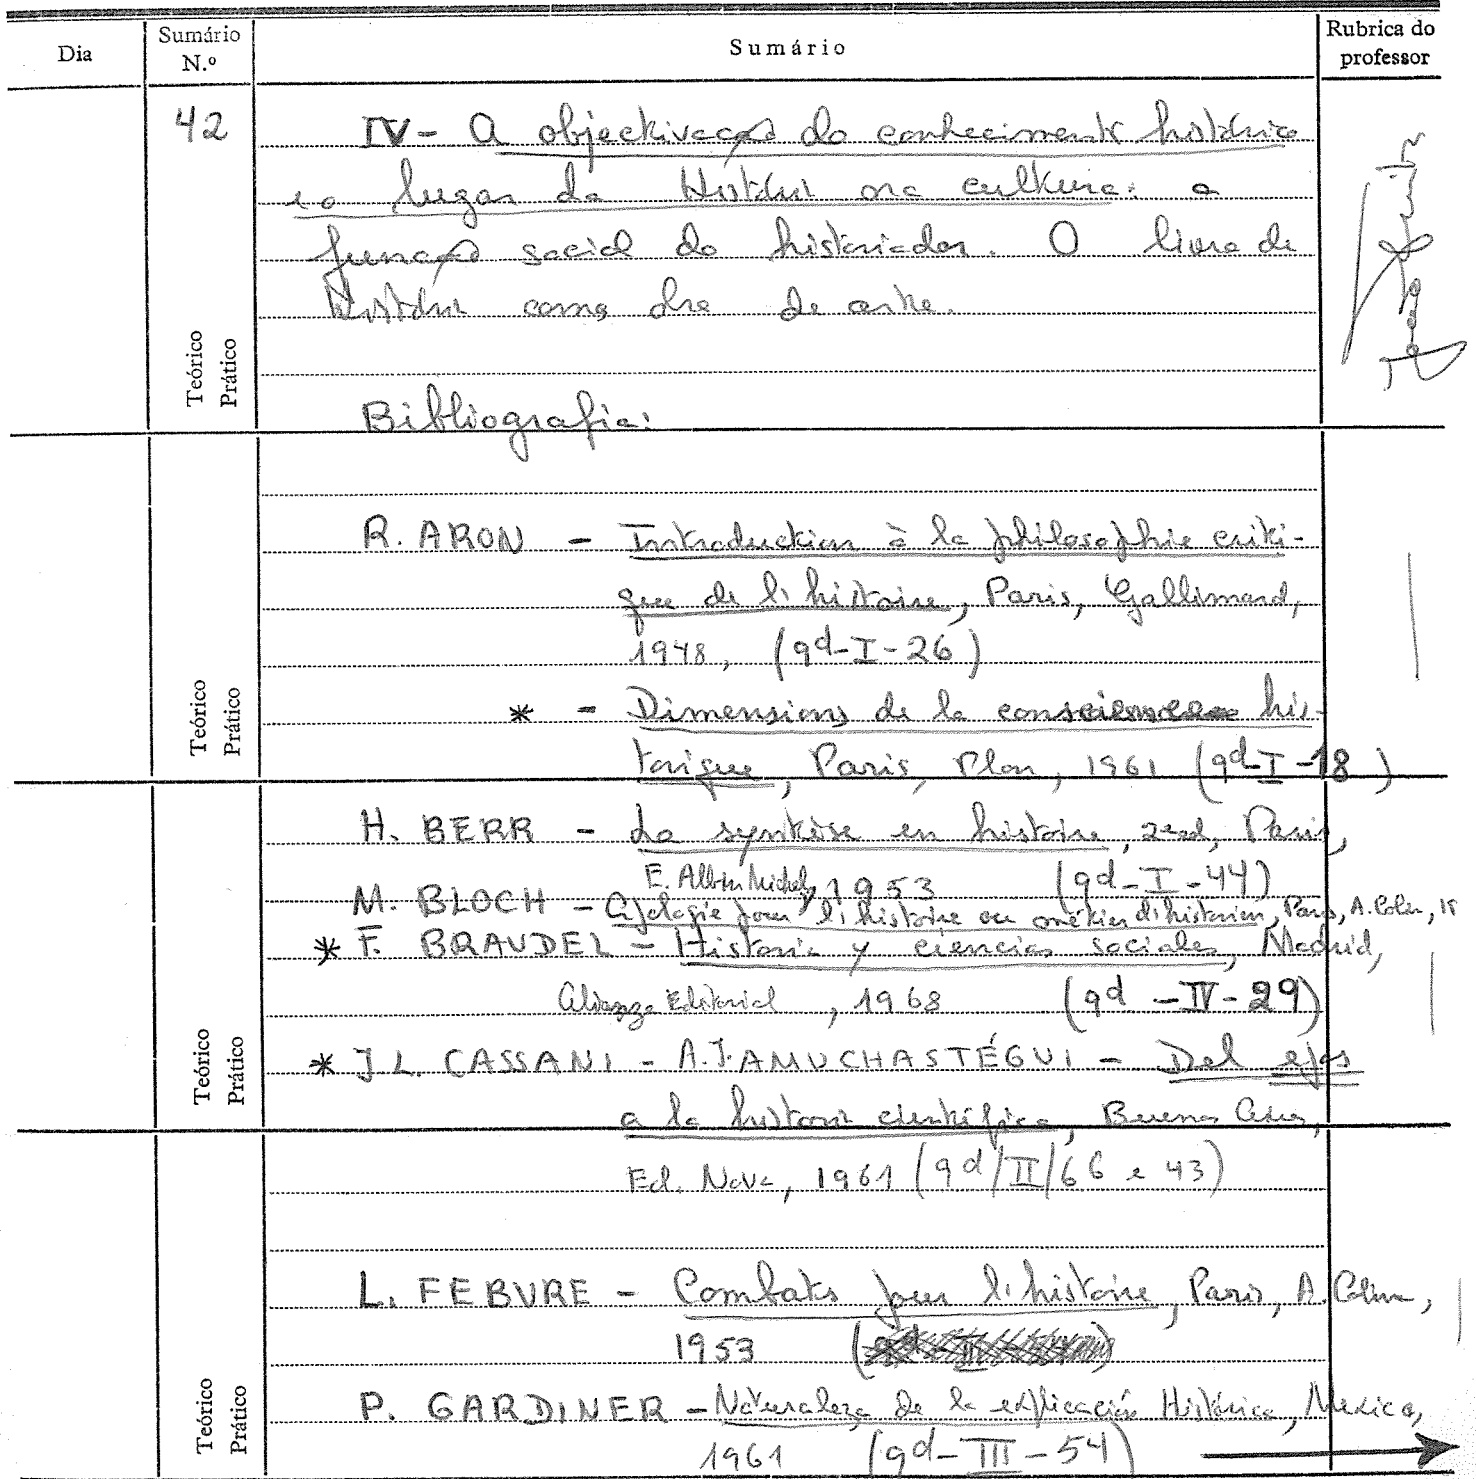 Dia
Sumário
N.º
Sumário
Rubrica do
professor
42
IV - A objectivação do conhecimento histórico
e o lugar da História na cultura: a
função social do historiador. O livro de
História como obra de arte.
Teórico
Prático
Bibliografia:
R. ARON - Introduction à la philosophie criti-
que de l'histoire, Paris, Gallimard,
1948, (9d-I-26)
* - Dimensions de la conscience his-
torique, Paris, Plon, 1961 (9d-I-18)
Teórico
Prático
H. BERR - La synthèse en histoire, 2ª ed, Paris,
E. Albin Michel, 1953 (9d-I-44)
M. BLOCH - Apologie pour l'histoire ou métier d'historien, Paris, A. Colin, 19
* F. BRAUDEL - Historia y ciencias sociales, Madrid,
Alianza Editorial, 1968 (9d-IV-29)
* J L. CASSANI - A.J. AMUCHASTÉGUI - Del epos
a la historia científica, Buenos Aires,
Teórico
Prático
Ed. Nova, 1961 (9d/II/66 e 43)
L. FEBVRE - Combats pour l'histoire, Paris, A. Colin,
1953
P. GARDINER - Naturaleza de la explicación Histórica, Mexico,
1961 (9d-III-54)
Teórico
Prático